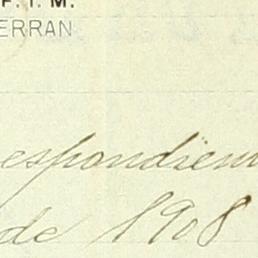 F. T. M.
ERRAN
espondien
de 1908